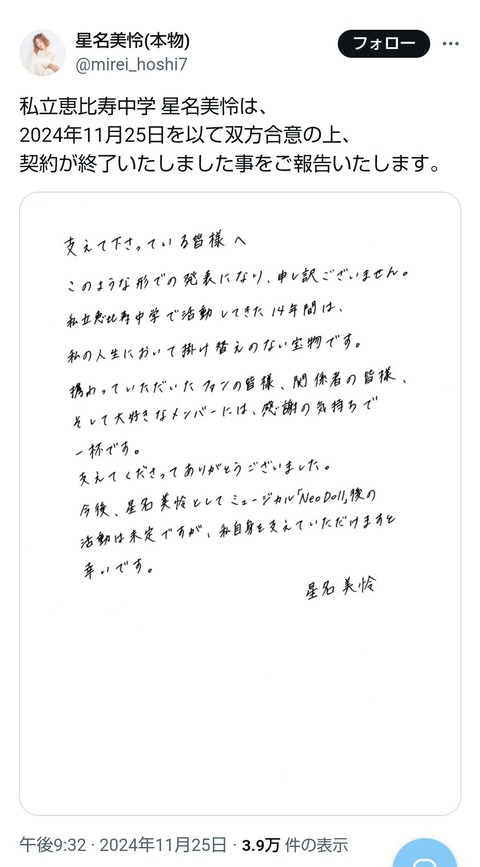 星名美怜(本物)
@mirei_hoshi7
フォロー
私立恵比寿中学 星名美怜は、
2024年11月25日を以て双方合意の上、
契約が終了いたしました事をご報告いたします。
支えて下さっている皆様へ
このような形での発表になり、申し訳ございません。
私立恵比寿中学で活動してきた14年間は、
私の人生において掛け替えのない宝物です。
携わっていただいたファンの皆様、関係者の皆様、
そして大好きなメンバーには、感謝の気持ちで
一杯です。
支えてくださってありがとうございました。
今後、星名美怜としてミュージカル「Neo Doll」後の
活動は未定ですが、私自身を支えていただけますと
幸いです。
星名美怜
午後9:32 · 2024年11月25日 · 3.9万 件の表示